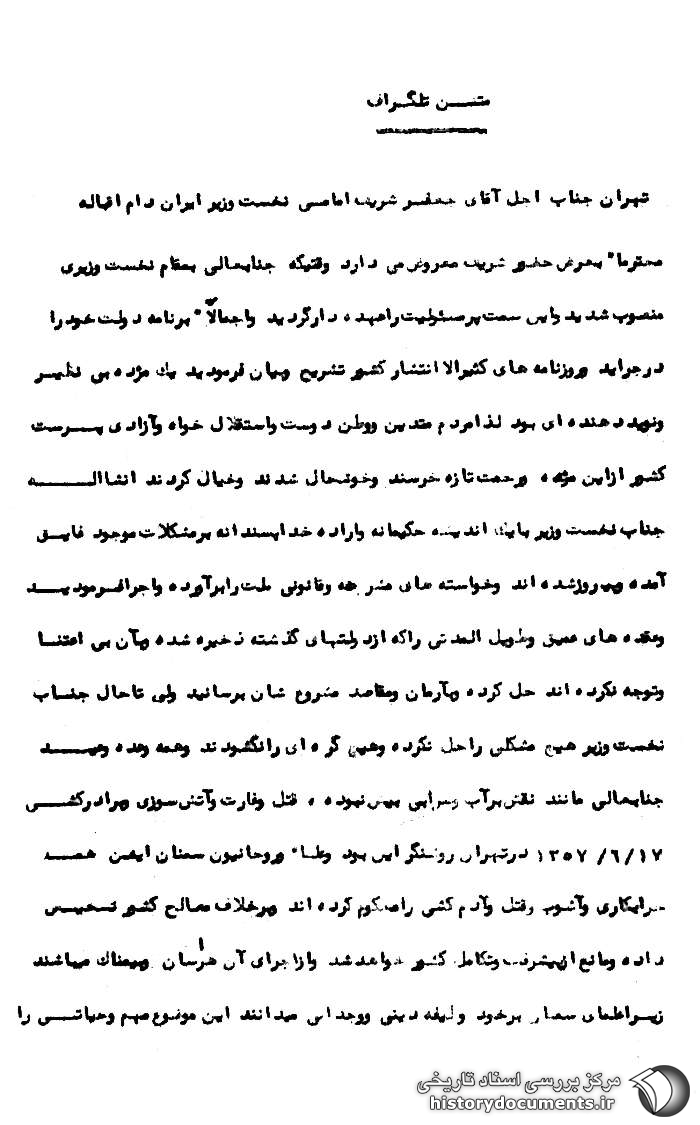 متن تلگراف
تهران جناب اجل آقای جعفر شریف امامی نخست وزیر ایران دام اقباله
محترما" بعرض حضور شریف معروض می دارد وقتیکه جنابعالی بمقام نخست وزیری
منصوب شدید واین سمت پرمسئولیت راعهده دارگردید واجمالاً" برنامه دولت خودرا
درجراید وروزنامه های کثیرالا انتشار کشور تشریح وبیان فرمودید یك مژده بی نظیر
ونویددهنده ای بود لذامردم متدین ووطن دوست واستقلال خواه وآزادی پرست
کشور ازاین مژده ورحمت تازه خرسند وخوشحال شدند وخیال کردند انشااله
جناب نخست وزیر بایك اندیشه حکیمانه واراده خداپسندانه برمشکلات موجود فایق
آمده وپیروزشده اند وخواسته های مشروعه وقانونی ملت رابرآورده واجرافرمودید
وعقده های عمیق وطویل المدتی راکه ازدولتهای گذشته ذخیره شده وبآن بی اعتنا
وتوجه نکرده اند حل کرده وبآرمان ومقاصد مشروع شان برسانید ولی تاحال جناب
نخست وزیر هیچ مشکلی راحل نکرده وهیچ گره ای رانگشودند وهمه وعده وعید
جنابعالی مانند نقش برآب وسرابی بیش نبوده ، قتل وغارت وآتش سوزی وبرادرکشی
۱۳۵۷/۶/۱۷ درتهران روشنگر این بود وعلماء وروحانیون سمنان ایضن همه
خرابکاری وآشوب وقتل وآدم کشی رامحکوم کرده اند وبرخلاف مصالح کشور تشخیص
داده ومانع ازپیشرفت وتکامل کشور خواهدشد وازاجرای آن هراسان وبیمناك میباشند
زیراعلمای سمنان برخود وظیفه دینی ووجدانی میدانند این موضوع مهم وحیاتی را
مرکز بررسی اسناد تاریخی
historydocuments.ir